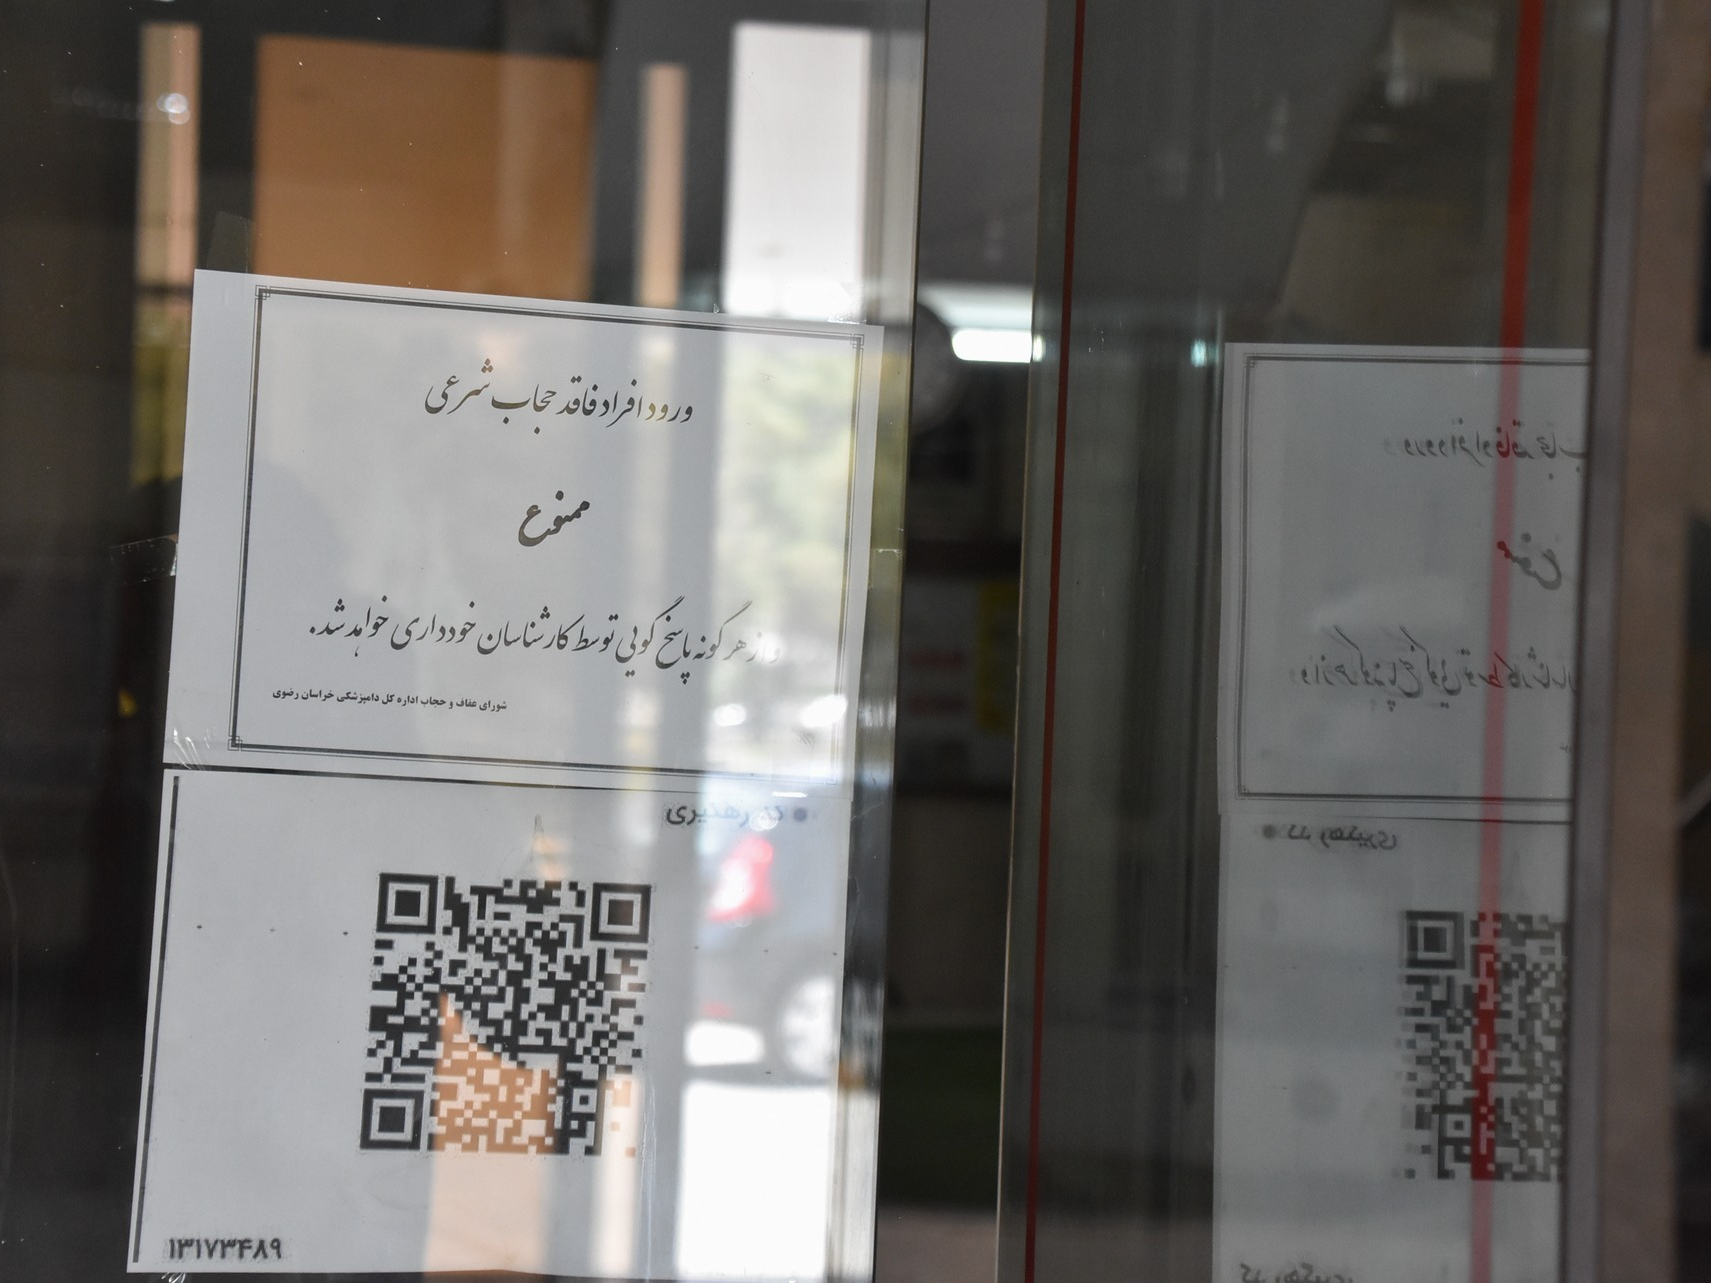 ورود افراد فاقد حجاب شرعی
ممنوع
و از هرگونه پاسخ گویی توسط کارشناسان خودداری خواهد شد.
شورای عفاف و حجاب اداره کل دامپزشکی خراسان رضوی
کد رهگیری
۱۳۱۷۳۴۸۹